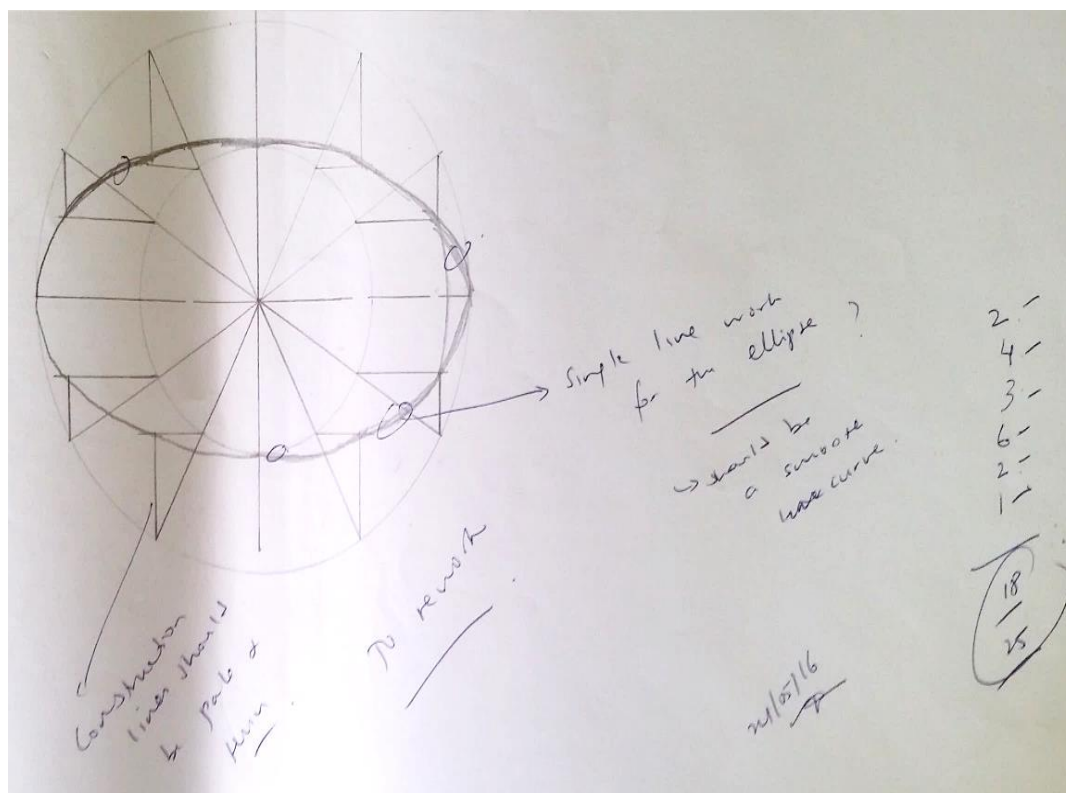 Simple line work
for the ellipse ?
→ should be
a smoote
curve.
Construction
lines should
be pale &
thin.
To rework
2 -
4 -
3 -
6 -
2 -
1 -
18
25
/05/16